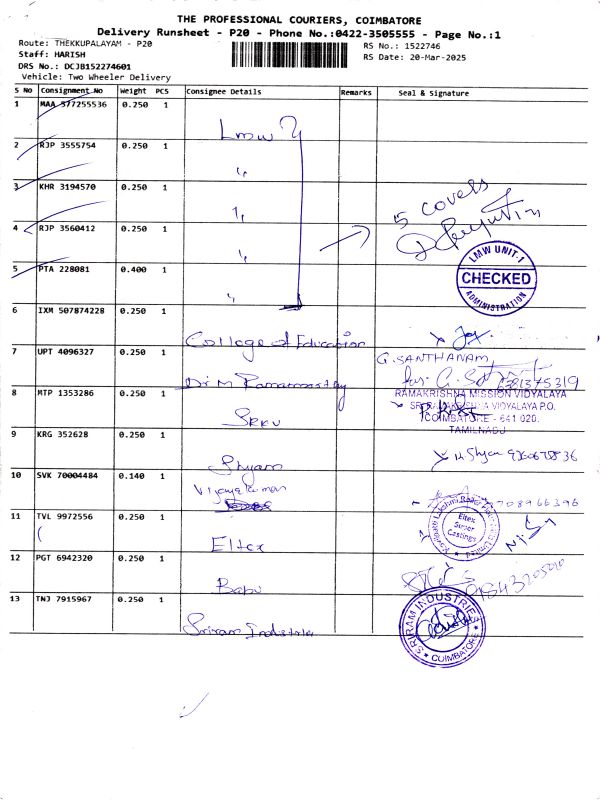 THE PROFESSIONAL COURIERS, COIMBATORE
Delivery Runsheet - P20 - Phone No.:0422-3505555 - Page No.:1
Route: THEKKUPALAYAM - P20 RS No.: 1522746
Staff: HARISH RS Date: 20-Mar-2025
DRS No.: DCJB152274601
Vehicle: Two Wheeler Delivery
S No Consignment No Weight PCS Consignee Details Remarks Seal & Signature
1 MAA 577255536 0.250 1
Lmw
2 RJP 3555754 0.250 1
"
3 KHR 3194570 0.250 1
"
5 covers
4 RJP 3560412 0.250 1
"
LMW UNIT-1
CHECKED
ADMINISTRATION
5 PTA 228081 0.400 1
"
6 IXM 507874228 0.250 1
College of Education
7 UPT 4096327 0.250 1
G. SANTHANAM
8 MTP 1353286 0.250 1
RAMAKRISHNA MISSION VIDYALAYA
SRI RAMAKRISHNA VIDYALAYA P.O.
COIMBATORE - 641 020.
TAMILNADU
9 KRG 352628 0.250 1
Shyam
10 SVK 70004484 0.140 1
Vijayakumar
11 TVL 9972556 0.250 1
Eltex
Eltex
Super
Castings
12 PGT 6942320 0.250 1
Babu
13 TNJ 7915967 0.250 1
Sriram Industries
SRIRAM INDUSTRIES
COIMBATORE